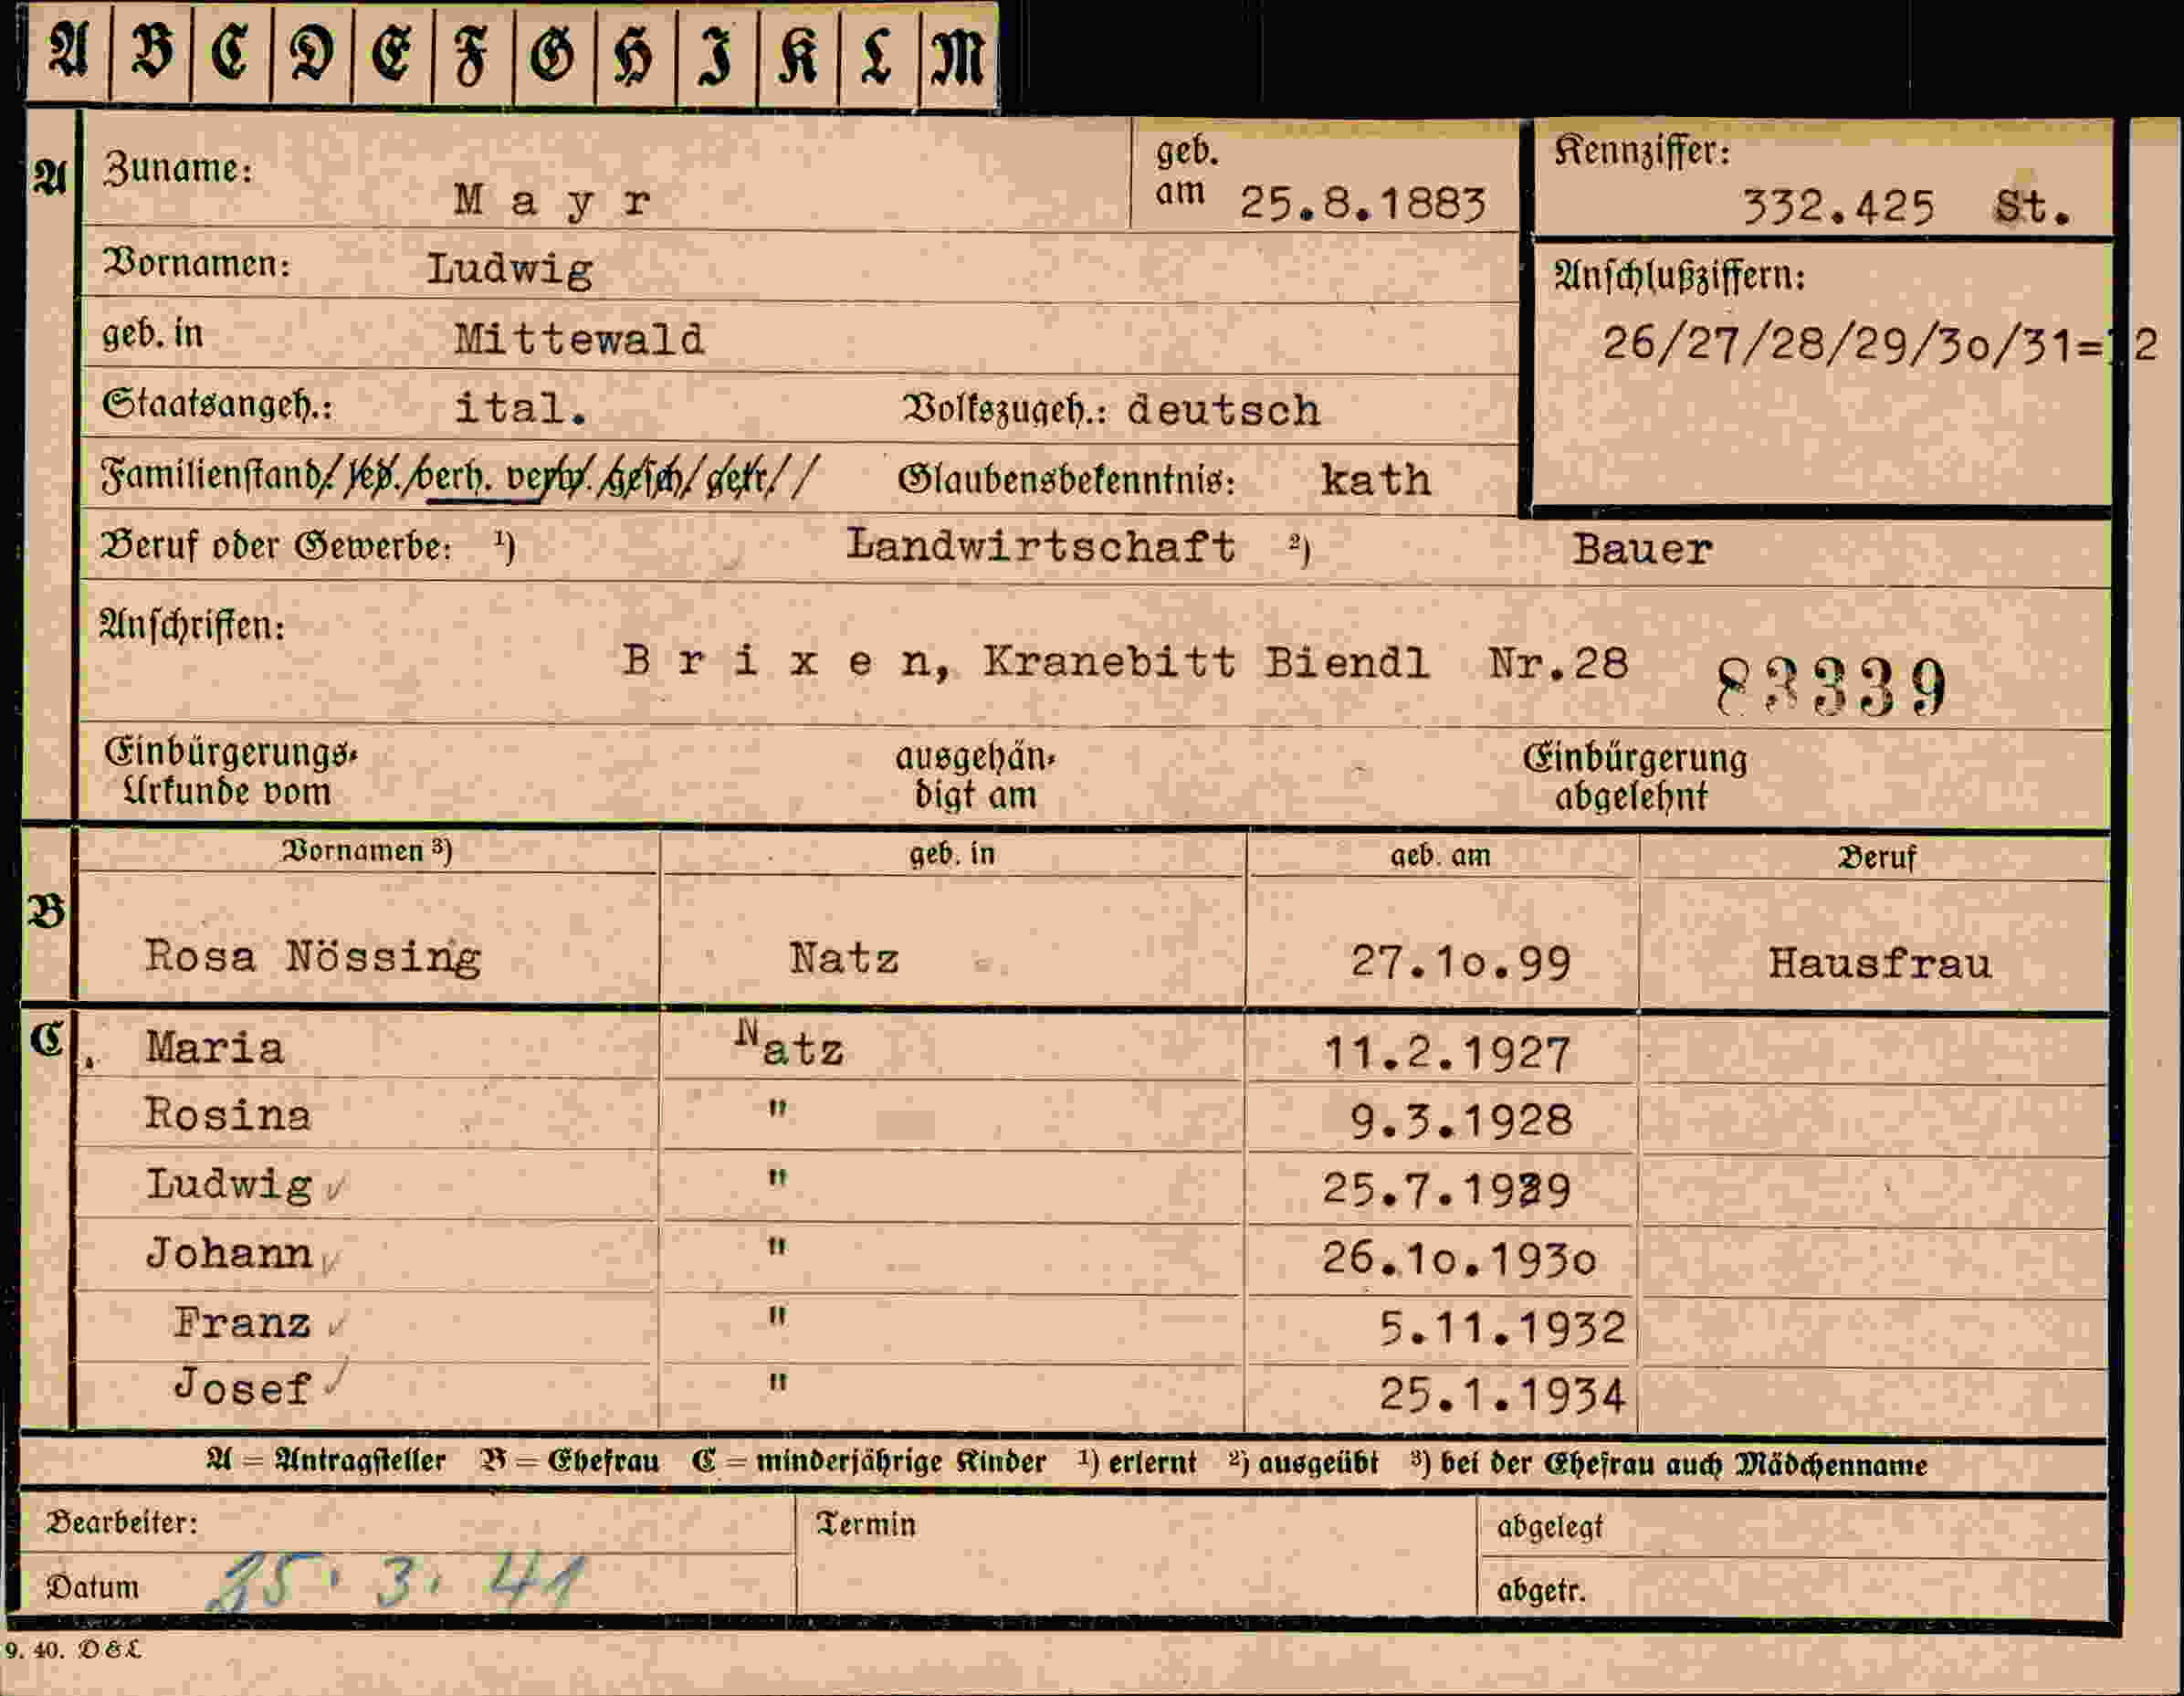 A B C D E F G H I K L M
A Zuname: M a y r geb. am 25.8.1883 Kennziffer: 332.425 St.
Vornamen: Ludwig Anschlußziffern:
geb. in Mittewald 26/27/28/29/3o/31=12
Staatsangeh.: ital. Volkszugeh.: deutsch
Familienstand: led. verh. verw. gesch. getr. Glaubensbekenntnis: kath
Beruf oder Gewerbe: ¹) Landwirtschaft ²) Bauer
Anschriften:
B r i x e n, Kranebitt Biendl Nr.28 83339
Einbürgerungs-Urkunde vom ausgehän-digt am Einbürgerung abgelehnt
Vornamen ³) geb. in geb. am Beruf
B Rosa Nössing Natz 27.1o.99 Hausfrau
C Maria Natz 11.2.1927
Rosina " 9.3.1928
Ludwig " 25.7.1929
Johann " 26.1o.193o
Franz " 5.11.1932
Josef " 25.1.1934
A = Antragsteller B = Ehefrau C = minderjährige Kinder ¹) erlernt ²) ausgeübt ³) bei der Ehefrau auch Mädchenname
Bearbeiter: Termin abgelegt
Datum 25. 3. 41 abgetr.
9. 40. D & L